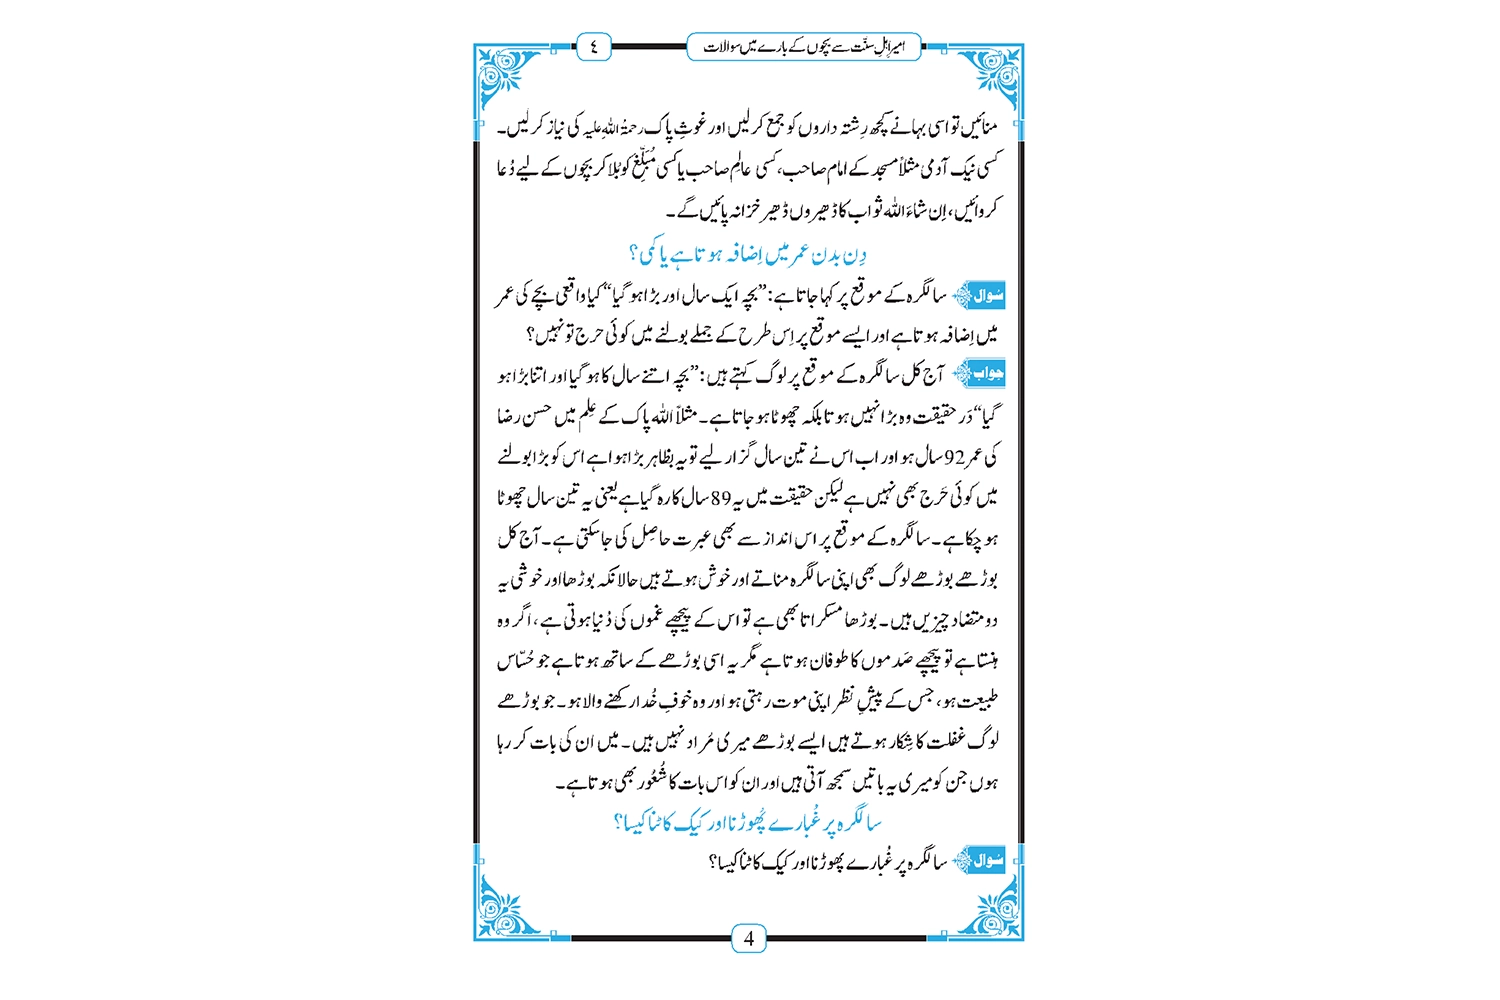 امیرِ اہلِ سنّت سے بچوں کے بارے میں سوالات
٤
منائیں تو اسی بہانے کچھ رِشتہ داروں کو جمع کرلیں اور غوثِ پاک رحمۃُ اللہِ علیہ کی نیاز کرلیں۔
کسی نیک آدمی مثلاً مسجد کے امام صاحب، کسی عالِم صاحب یا کسی مُبَلِّغ کو بُلا کر بچوں کے لیے دُعا
کروائیں، اِن شاءَ اللہ ثواب کا ڈھیروں ڈھیر خزانہ پائیں گے۔
دِن بدن عمر میں اِضافہ ہوتا ہے یا کمی؟
سُوال سالگرہ کے موقع پر کہا جاتا ہے: ”بچہ ایک سال اور بڑا ہوگیا“ کیا واقعی بچے کی عمر
میں اِضافہ ہوتا ہے اور ایسے موقع پر اِس طرح کے جملے بولنے میں کوئی حرج تو نہیں؟
جواب آج کل سالگرہ کے موقع پر لوگ کہتے ہیں: ”بچہ اتنے سال کا ہوگیا اور اتنا بڑا ہو
گیا“ دَر حقیقت وہ بڑا نہیں ہوتا بلکہ چھوٹا ہو جاتا ہے۔ مثلاً اللہ پاک کے عِلم میں حسن رضا
کی عمر 92 سال ہو اور اب اس نے تین سال گزار لیے تو یہ بظاہر بڑا ہوا ہے اس کو بڑا بولنے
میں کوئی حَرَج بھی نہیں ہے لیکن حقیقت میں یہ 89 سال کا رہ گیا ہے یعنی یہ تین سال چھوٹا
ہو چکا ہے۔ سالگرہ کے موقع پر اس انداز سے بھی عبرت حاصِل کی جاسکتی ہے۔ آج کل
بوڑھے بوڑھے لوگ بھی اپنی سالگرہ مناتے اور خوش ہوتے ہیں حالانکہ بوڑھا اور خوشی یہ
دو متضاد چیزیں ہیں۔ بوڑھا مسکراتا بھی ہے تو اس کے پیچھے غموں کی دُنیا ہوتی ہے، اگر وہ
ہنستا ہے تو پیچھے صَدموں کا طوفان ہوتا ہے مگر یہ اسی بوڑھے کے ساتھ ہوتا ہے جو حُسّاس
طبیعت ہو، جس کے پیشِ نظر اپنی موت رہتی ہو اور وہ خوفِ خُدا رکھنے والا ہو۔ جو بوڑھے
لوگ غفلت کا شِکار ہوتے ہیں ایسے بوڑھے میری مُراد نہیں ہیں۔ میں اُن کی بات کر رہا
ہوں جن کو میری یہ باتیں سمجھ آتی ہیں اور ان کو اس بات کا شُعُور بھی ہوتا ہے۔
سالگرہ پر غُبارے پُھوڑنا اور کیک کاٹنا کیسا؟
سُوال سالگرہ پر غُبارے پھوڑنا اور کیک کاٹنا کیسا؟
4